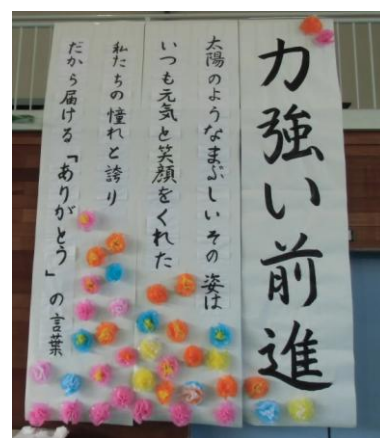 力強い前進
太陽のようなまぶしいその姿は
いつも元気と笑顔をくれた
私たちの憧れと誇り
だから届ける「ありがとう」の言葉